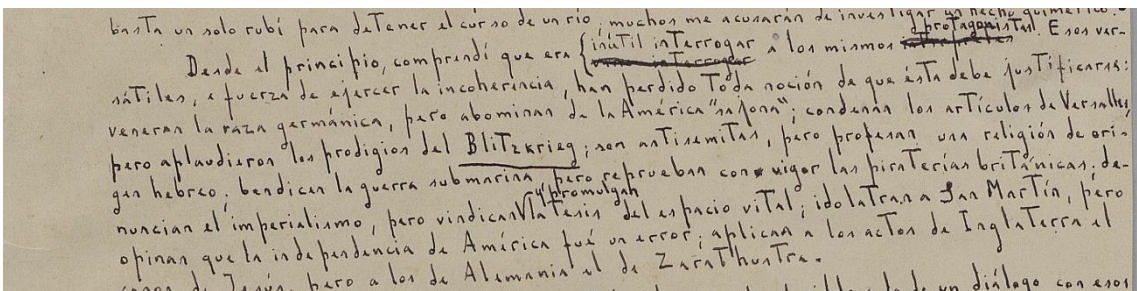 basta un solo rubí para detener el curso de un río; muchos me acusarán de investigar un hecho quimérico.
Desde el principio, comprendí que era { inútil interrogar a los mismos protagonistas. Esos ver-
sátiles, a fuerza de ejercer la incoherencia, han perdido toda noción de que ésta debe justificarse:
veneran la raza germánica, pero abominan de la América "sajona"; condenan los artículos de Versalles,
pero aplaudieron los prodigios del Blitzkrieg; son antisemitas, pero profesan una religión de ori-
gen hebreo; bendicen la guerra submarina, pero reprueban con vigor las piraterías británicas; de-
nuncian el imperialismo, pero vindican y promulgan la tesis del espacio vital; idolatran a San Martín, pero
opinan que la independencia de América fué un error; aplican a los actos de Inglaterra el
canon de Jesús, pero a los de Alemania el de Zarathustra.
de un diálogo con esos